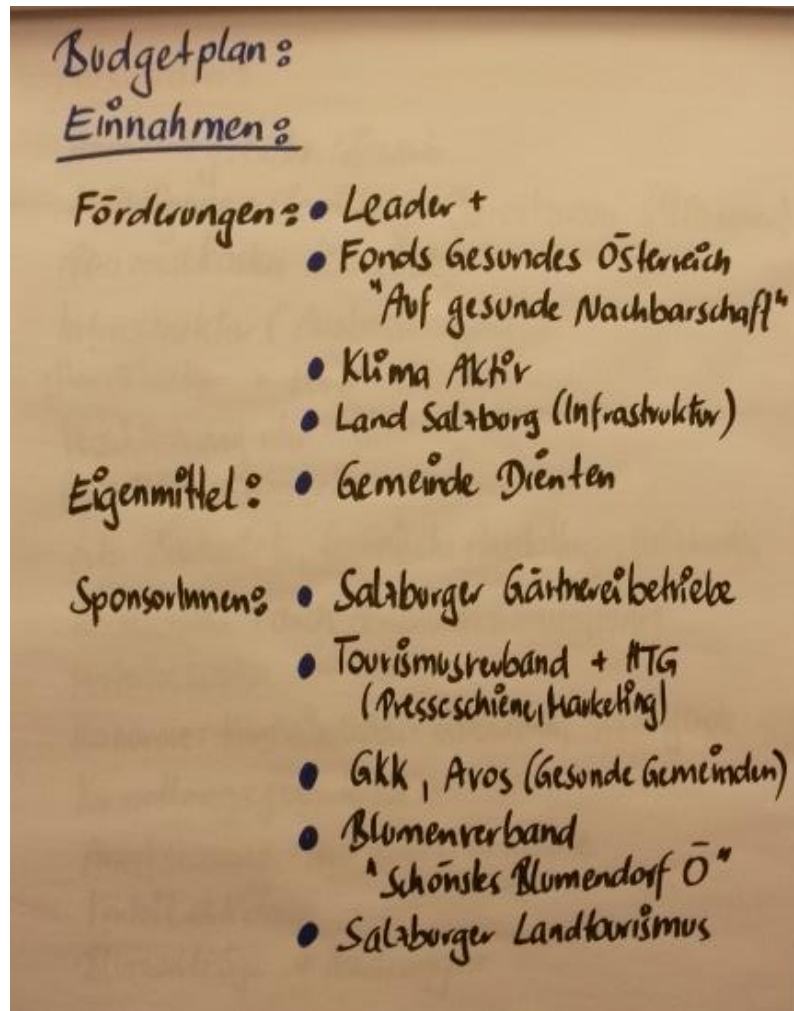 Budgetplan:
Einnahmen:
Förderungen: • Leader +
• Fonds Gesundes Österreich
"Auf gesunde Nachbarschaft"
• Klima Aktiv
• Land Salzburg (Infrastruktur)
Eigenmittel: • Gemeinde Dienten
SponsorInnen: • Salzburger Gärtnereibetriebe
• Tourismusverband + HTG
(Presseschiene, Marketing)
• GKK, Avos (Gesunde Gemeinden)
• Blumenverband
"Schönstes Blumendorf Ö"
• Salzburger Landtourismus